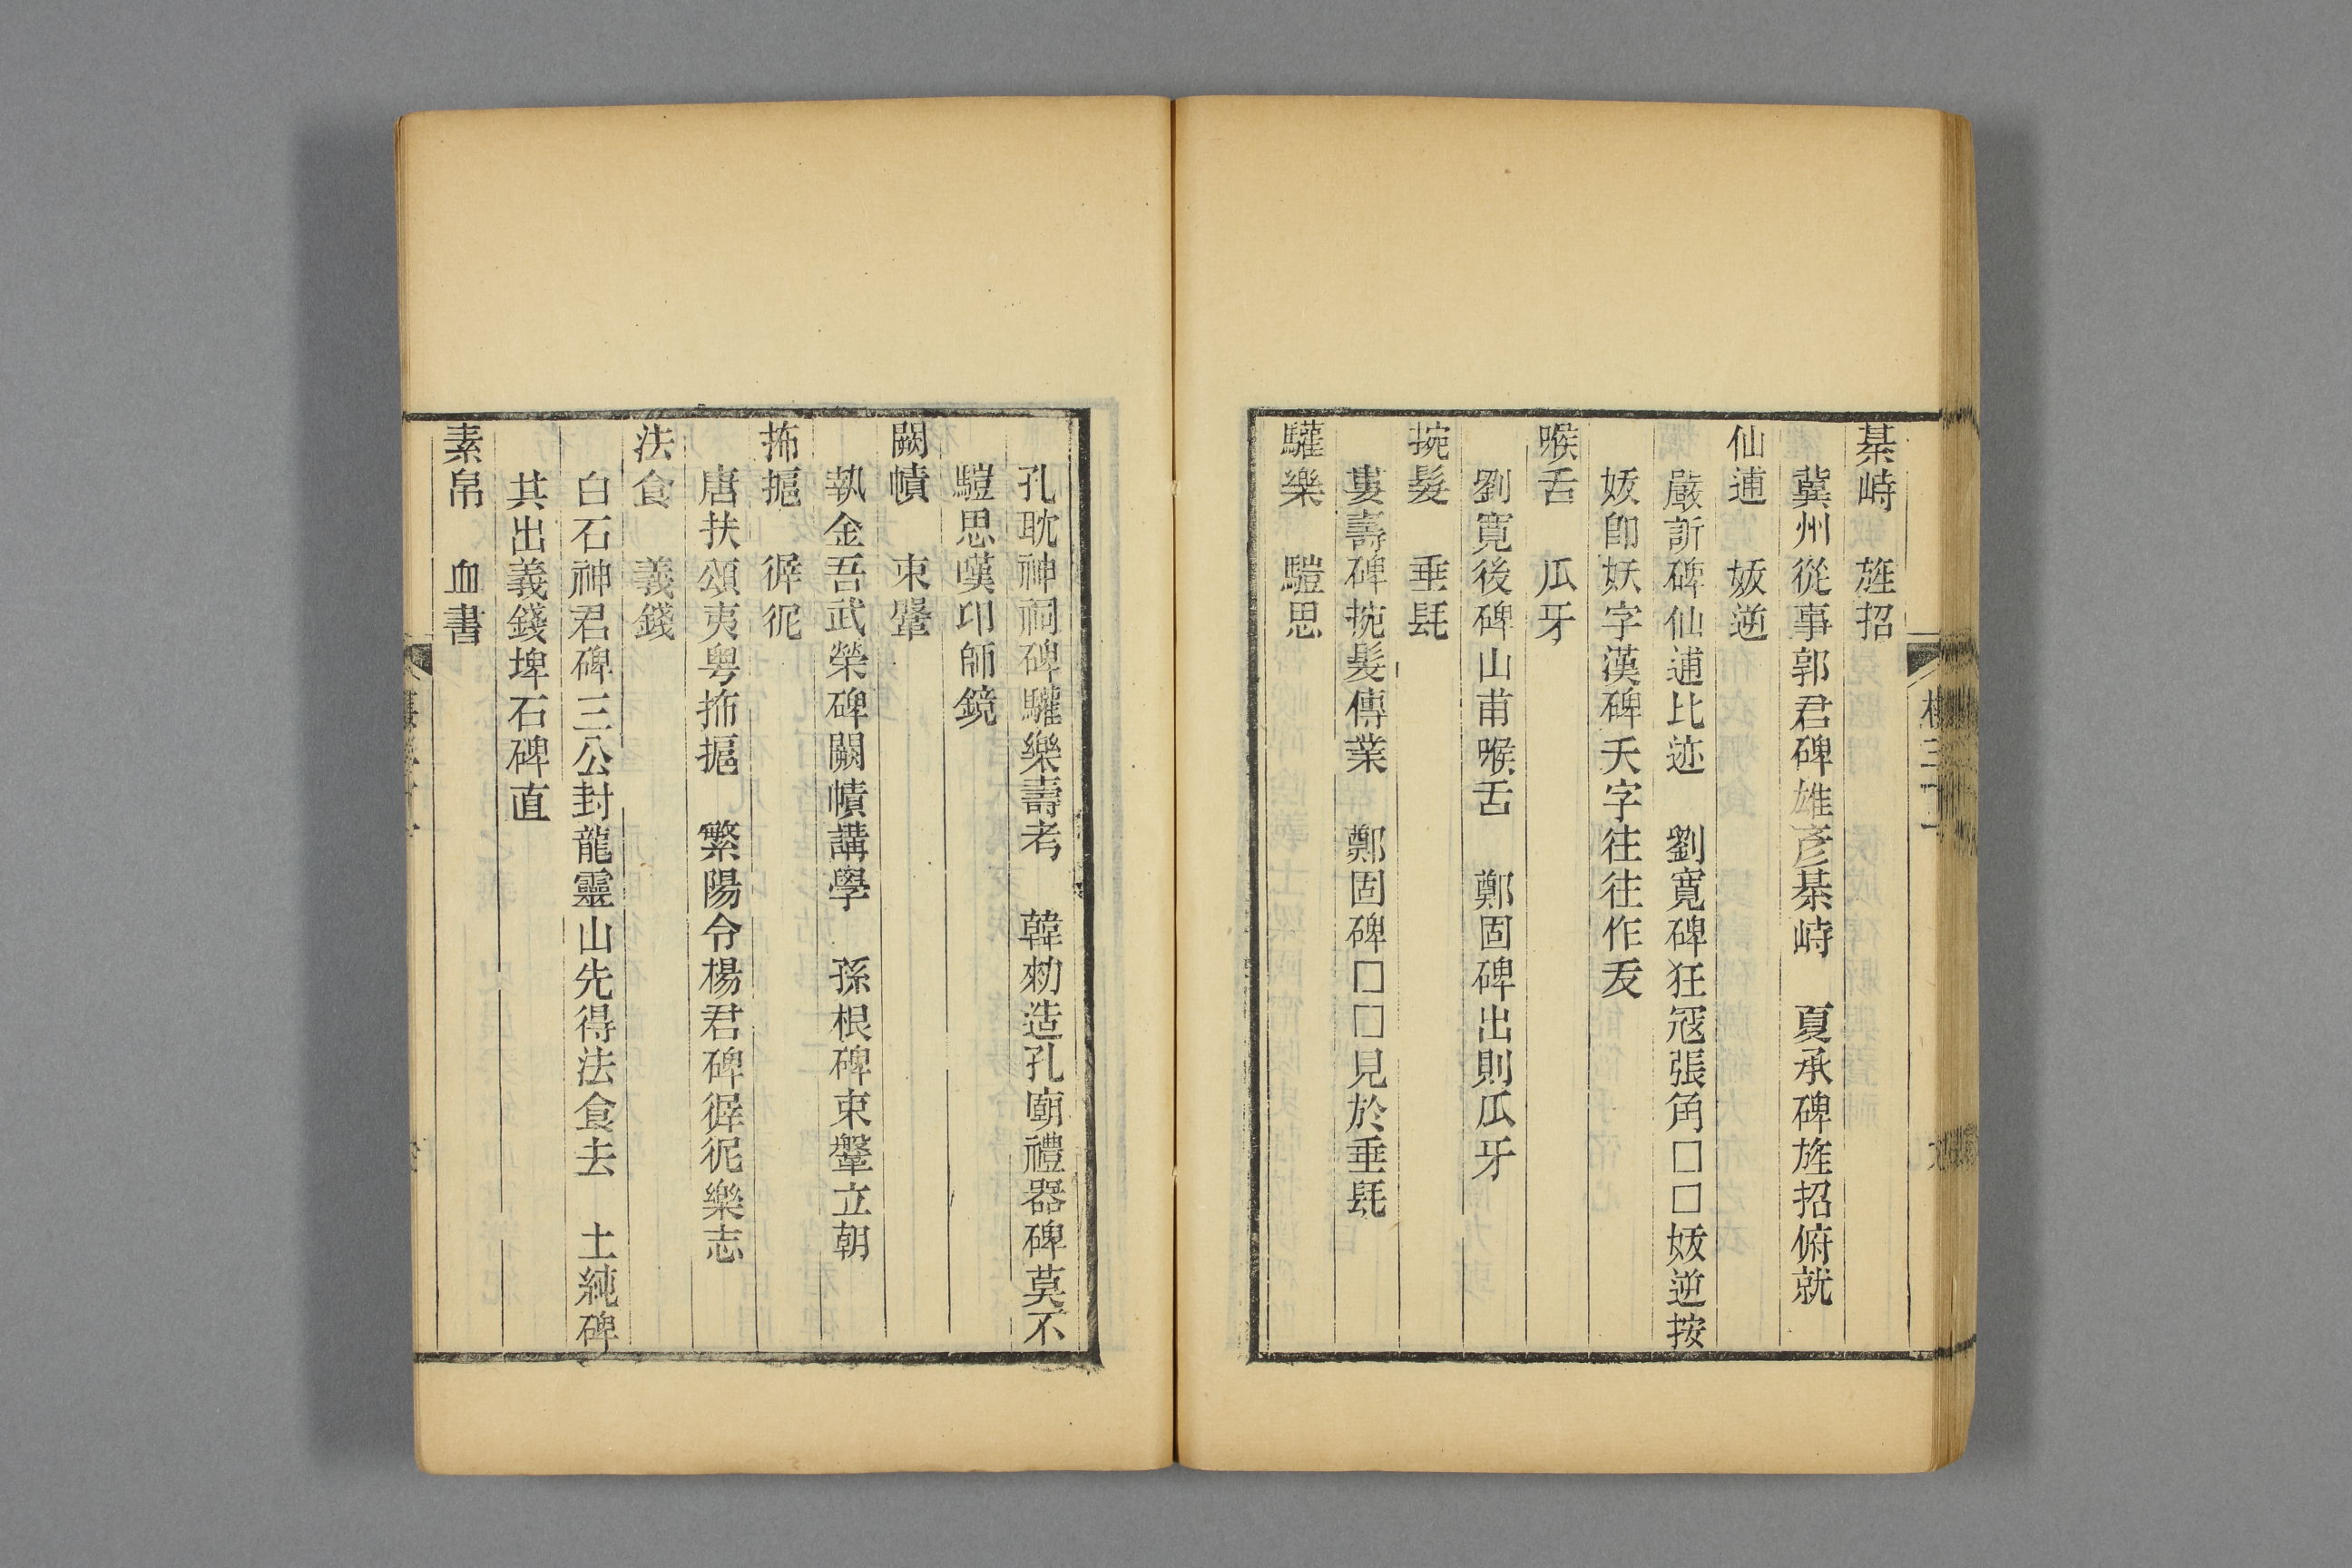 棊峙　旌招
冀州從事郭君碑雄彥棊峙　夏承碑旌招俯就
仙逋　妭逆
嚴訢碑仙逋比迹　劉寬碑狂冦張角□□妭逆按
妭卽妖字漢碑夭字往往作犮
喉舌　瓜牙
劉寬後碑山甫喉舌　鄭固碑出則瓜牙
捥髮　垂髦
婁壽碑捥髮傳業　鄭固碑□□見於垂髦
驩樂　騹思
孔耽神祠碑驩樂壽考　韓勑造孔廟禮器碑莫不
騹思嘆卬師鏡
闕幘　束鞶
執金吾武榮碑闕幘講學　孫根碑束鞶立朝
抪摳　徲彽
唐扶頌夷粤抪摳　繁陽令楊君碑徲彽樂志
法食　義錢
白石神君碑三公封龍靈山先得法食去　土純碑
其出義錢埤石碑直
素帛　血書